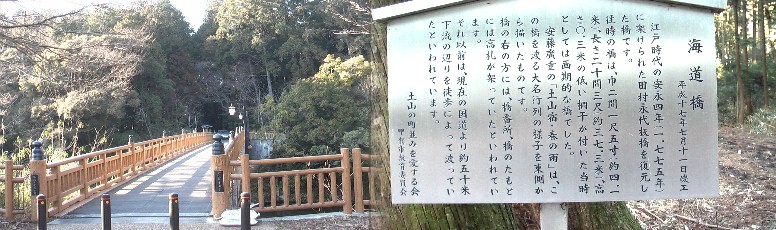 海道橋
平成十七年七月十一日竣工
江戸時代の安永四年（一七七五年）
に架けられた田村永代板橋を復元し
た橋です。
往時の橋は、巾二間一尺五寸（約四・一
米）、長さ二十間三尺（約三七・三米）、高
さ〇・三米の低い欄干が付いた当時
としては画期的な橋でした。
安藤廣重の「土山宿・春の雨」は、こ
の橋を渡る大名行列の様子を東側か
ら描いたものです。
橋の右の方には、橋番所、橋のたもと
には高札が架っていたといわれてい
ます。
それ以前は、現在の国道より約五十米
下流の辺りを徒歩によって渡ってい
たといわれています。
土山の町並みを愛する会
甲賀市教育委員会